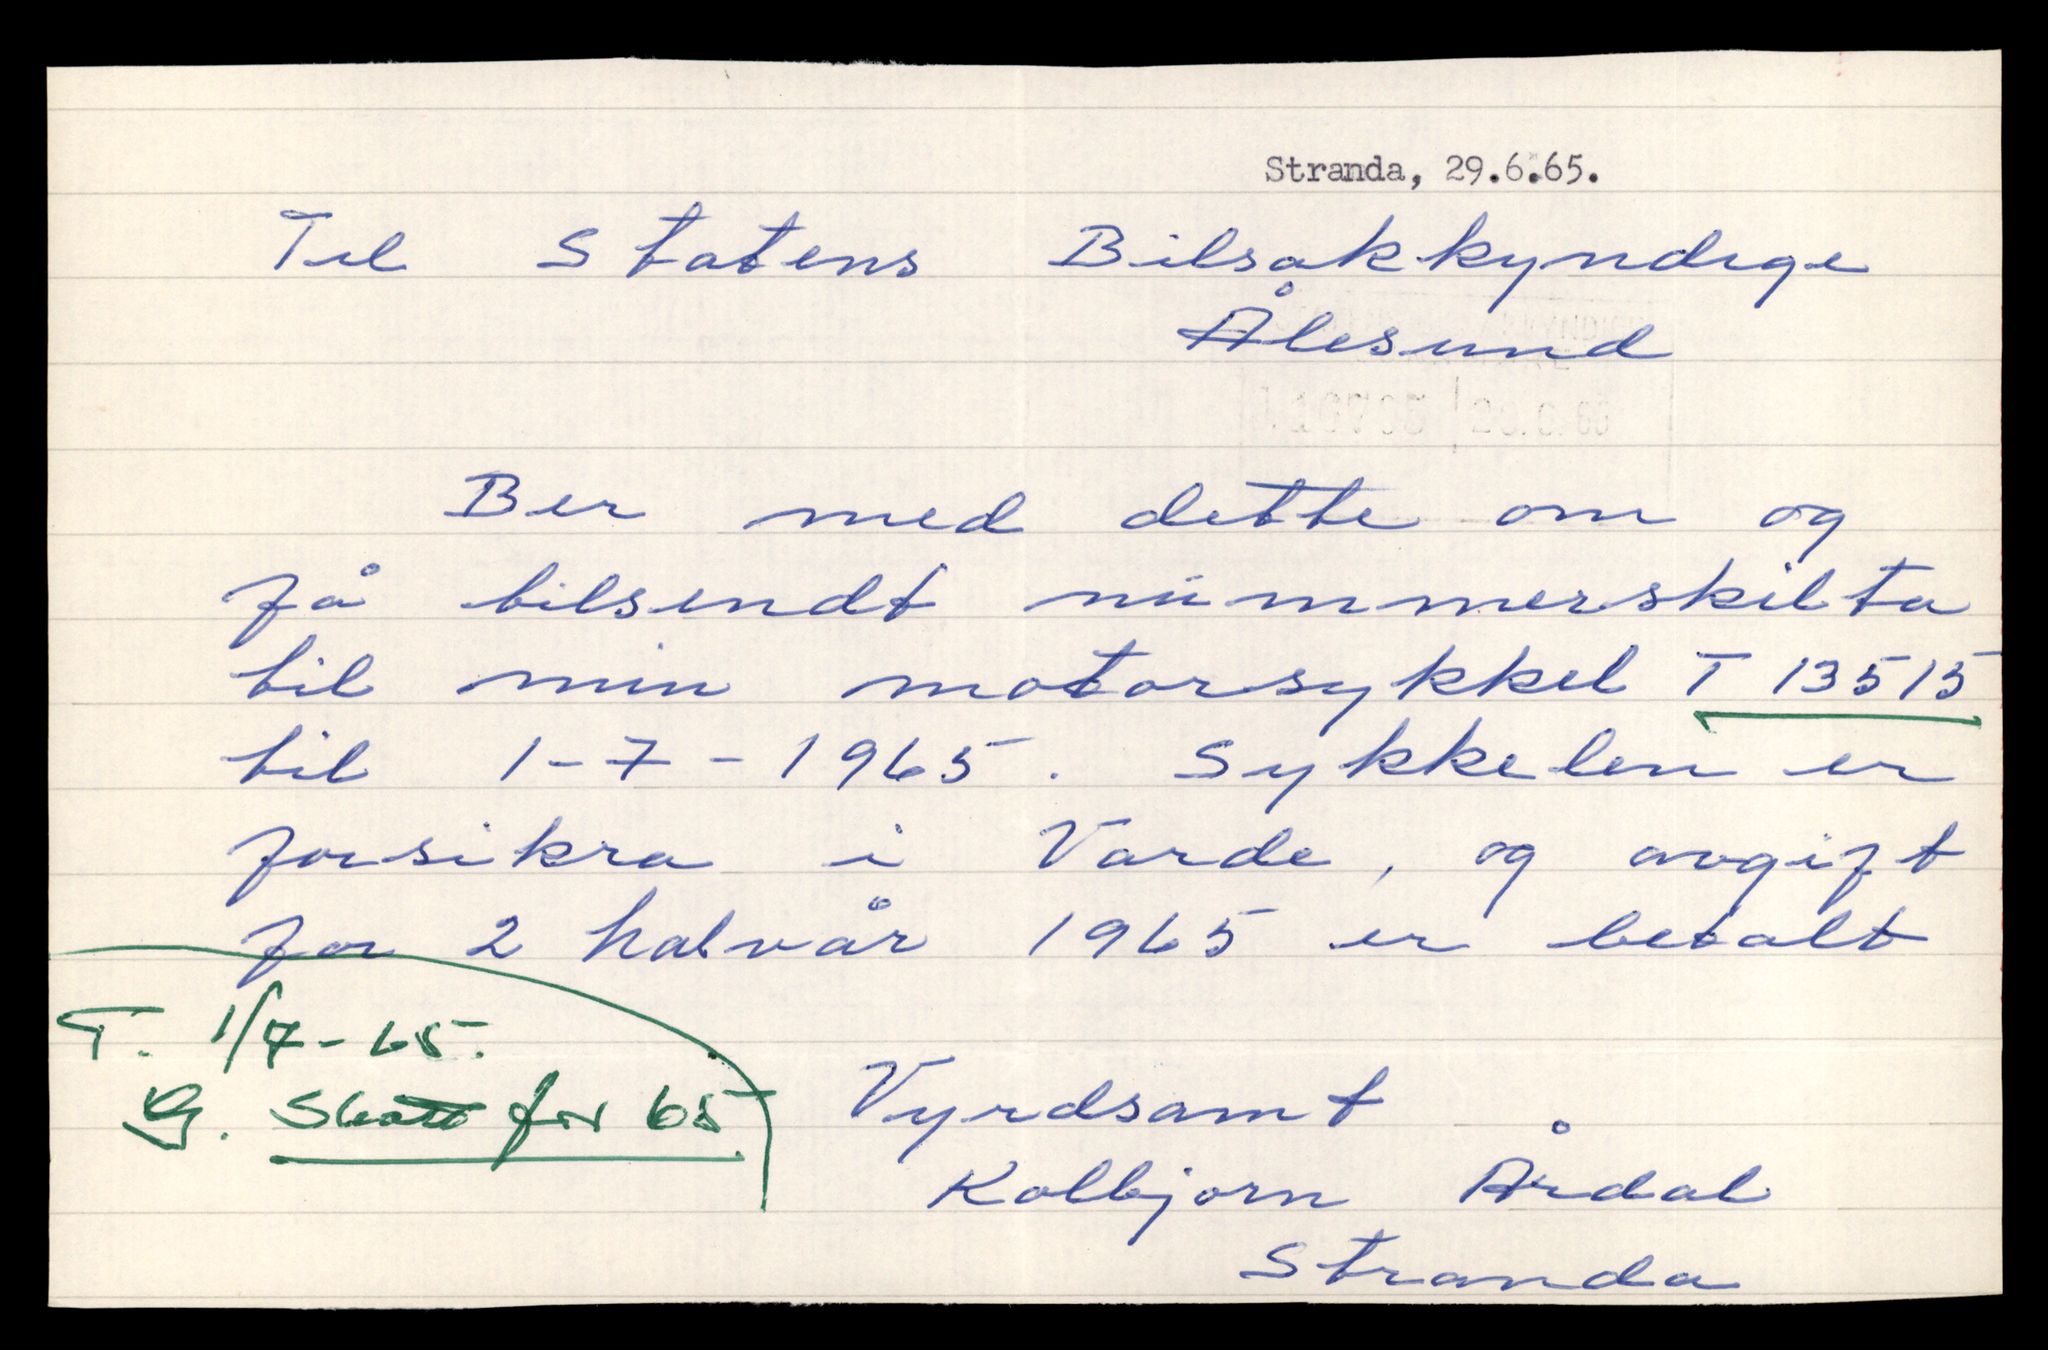 Stranda, 29.6.65.
Til Statens Bilsakkyndige
Ålesund
Ber med dette om og
få tilsendt nummerskilta
til min motorsykkel T 13515
til 1-7-1965. Sykkelen er
forsikra i Varde, og avgift
for 2 halvår 1965 er betalt
T. 1/7-65.
G. Skatt for 65
Vyrdsamt
Kolbjørn Årdal
Stranda